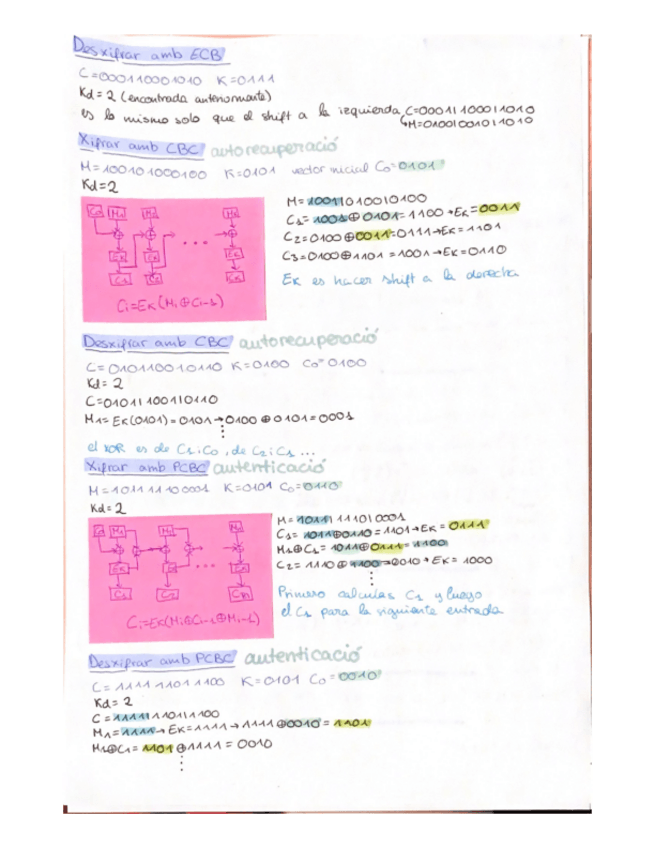 Desxifrar amb ECB
C=000110001010 K=0111
Kd=2 (encontrada anteriormente)
es lo mismo solo que el shift a la izquierda C=0001|1000|1010
↳M=0100|0010|1010
Xifrar amb CBC autorecuperació
M=100101000100 K=0101 vector inicial C0=0101
Kd=2
M=1001|0100|0100
C1=1001⊕0101=1100→EK=0011
C2=0100⊕0011=0111→EK=1101
C3=0100⊕1101=1001→EK=0110
EK es hacer shift a la derecha
C0 M1 M2 Mn
EK EK EK
C1 C2
Ci=EK(Mi⊕Ci-1)
Desxifrar amb CBC autorecuperació
C=010110010110 K=0100 C0=0100
Kd=2
C=0101|1001|0110
M1=EK(0101)=0101→0100⊕0101=0001
el XOR es de C1 i C0, de C2 i C1 ...
Xifrar amb PCBC autenticació
M=101111100001 K=0101 C0=0110
Kd=2
M=1011|1110|0001
C1=1011⊕0110=1101→EK=0111
M1⊕C1=1011⊕0111=1100
C2=1110⊕1100→0010→EK=1000
Primero calculas C1 y luego
el C1 para la siguiente entrada
C0 M1 M2
EK EK EK
C1 C2 Cn
Ci=EK(Mi⊕Ci-1⊕Mi-1)
Desxifrar amb PCBC autenticació
C=111111011100 K=0101 C0=0010
Kd=2
C=1111|1101|1100
M1=1111→EK=1111→1111⊕0010=1101
M1⊕C1=1101⊕1111=0010